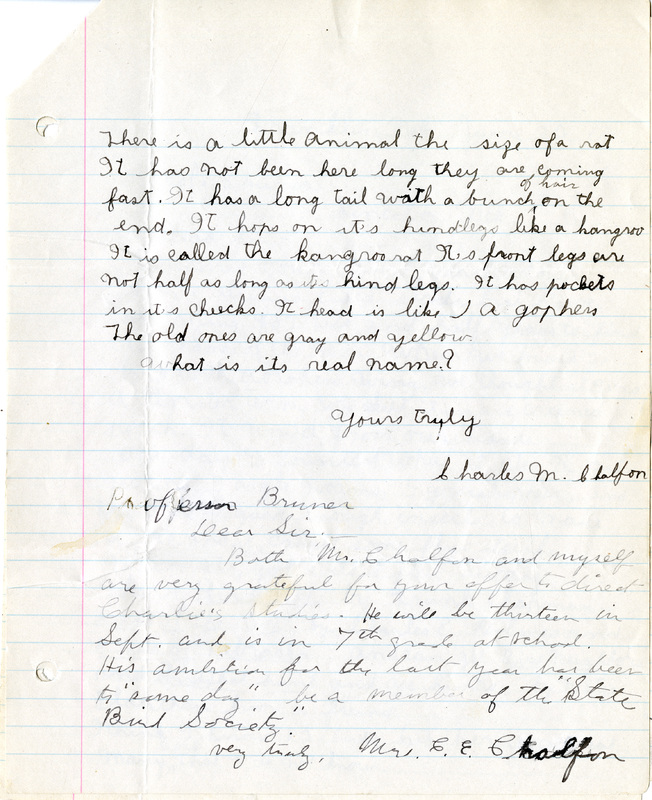 There is a little animal the size of a rat
It has not been here long they are coming
fast. It has a long tail with a bunch of hair on the
end. It hops on it's hind legs like a kangroo
It is called the kangroo rat It s front legs are
not half as long as its hind legs. It has pockets
in it's cheeks. It head is like a gophers
The old ones are gray and yellow.
what is its real name?
Yours truly
Charles M. Chalfon
Professor Bruner
Dear Sir.—
Both Mr. Chalfon and myself
are very grateful for your offer to direct
Charlie's studies. He will be thirteen in
Sept. and is in 7th grade at school.
His ambition for the last year has been
to "some day" be a member of the "State
Bird Society."
very truly, Mrs. C. E. Chalfon